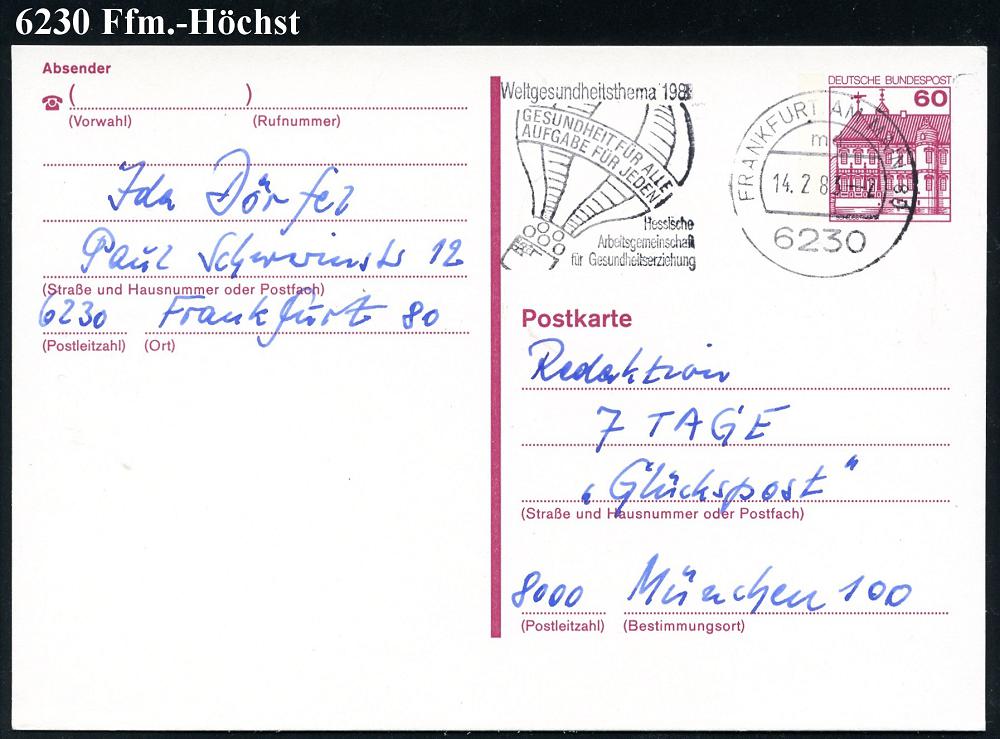 6230 Ffm.-Höchst
Absender
☎ ( )
(Vorwahl) (Rufnummer)
Ida Dörfel
Paul Schwerinstr 12
(Straße und Hausnummer oder Postfach)
6230 Frankfurt 80
(Postleitzahl) (Ort)
Weltgesundheitsthema 198
GESUNDHEIT FÜR ALLE
AUFGABE FÜR JEDEN
Hessische
Arbeitsgemeinschaft
für Gesundheitserziehung
DEUTSCHE BUNDESPOST
60
FRANKFURT AM MAIN 80
m
14. 2 8
6230
Postkarte
Redaktion
7 TAGE
„Glückspost"
(Straße und Hausnummer oder Postfach)
8000 München 100
(Postleitzahl) (Bestimmungsort)